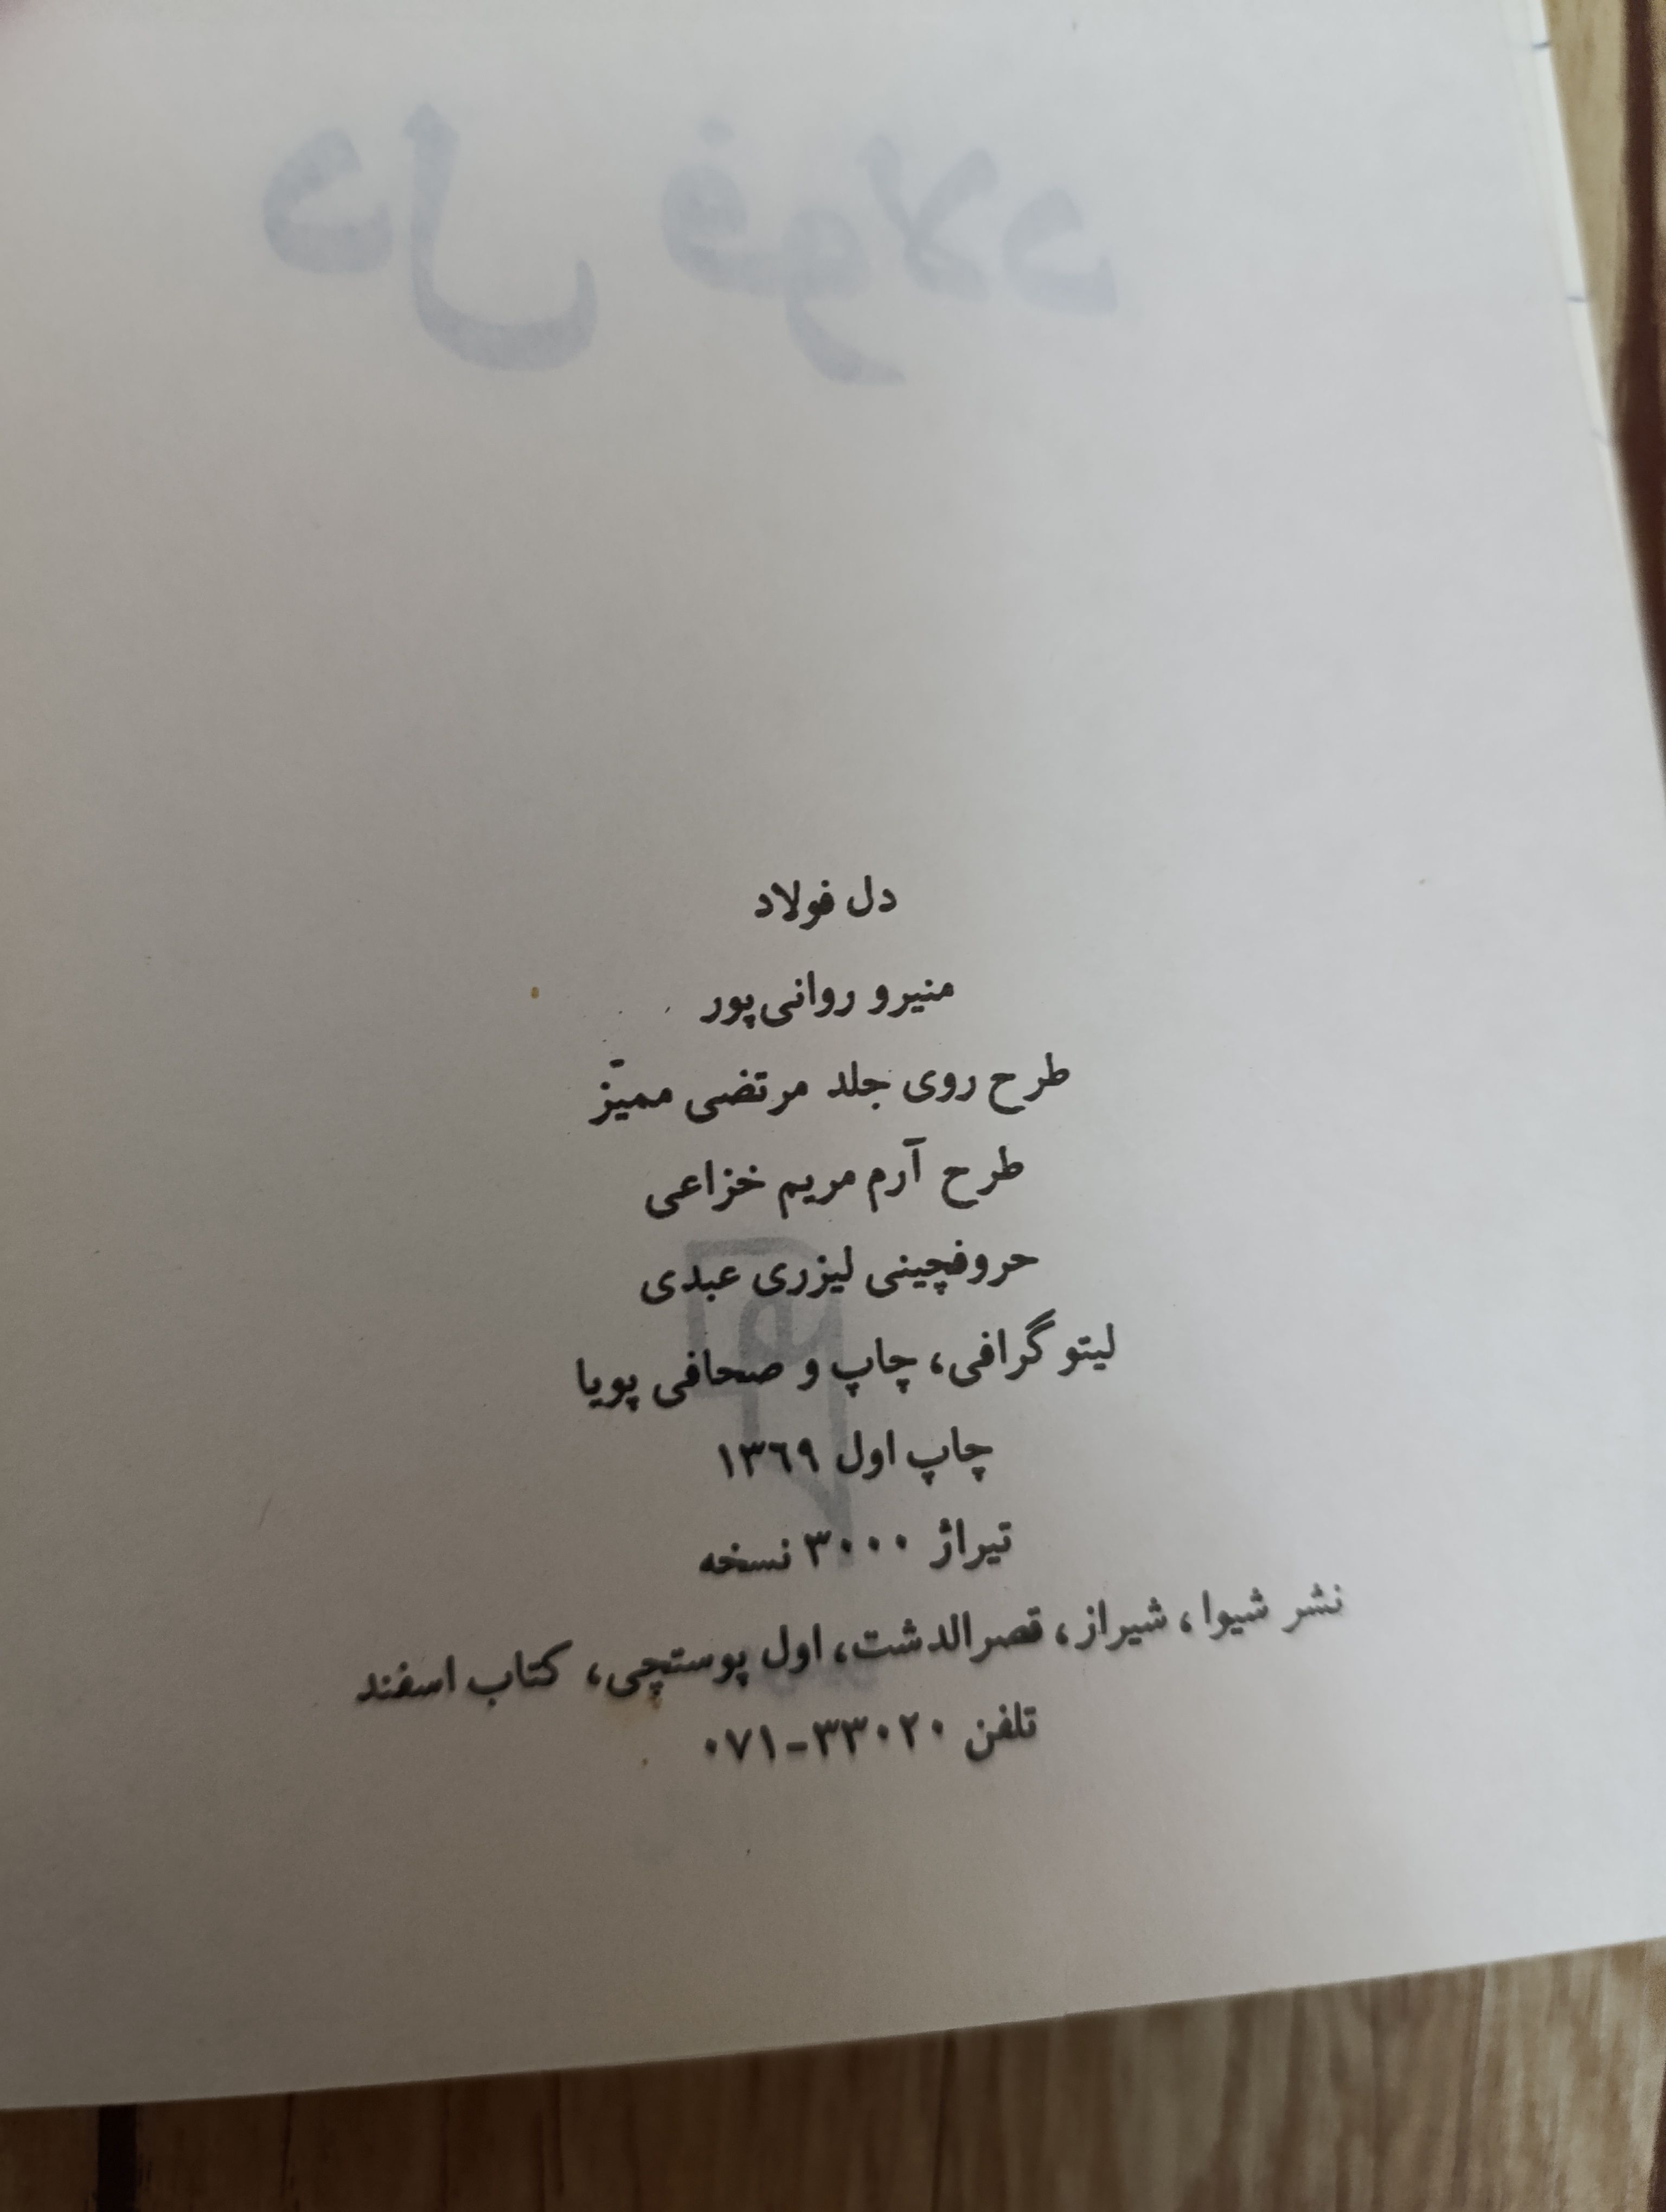 دل فولاد
دل فولاد
منیرو روانی‌پور
طرح روی جلد مرتضی ممیّز
طرح آرم مریم خزاعی
حروفچینی لیزری عبدی
لیتوگرافی، چاپ و صحافی پویا
چاپ اول ۱۳٦۹
تیراژ ۳۰۰۰ نسخه
نشر شیوا، شیراز، قصرالدشت، اول پوستچی، کتاب اسفند
تلفن ۳۳۰۲۰-۰۷۱